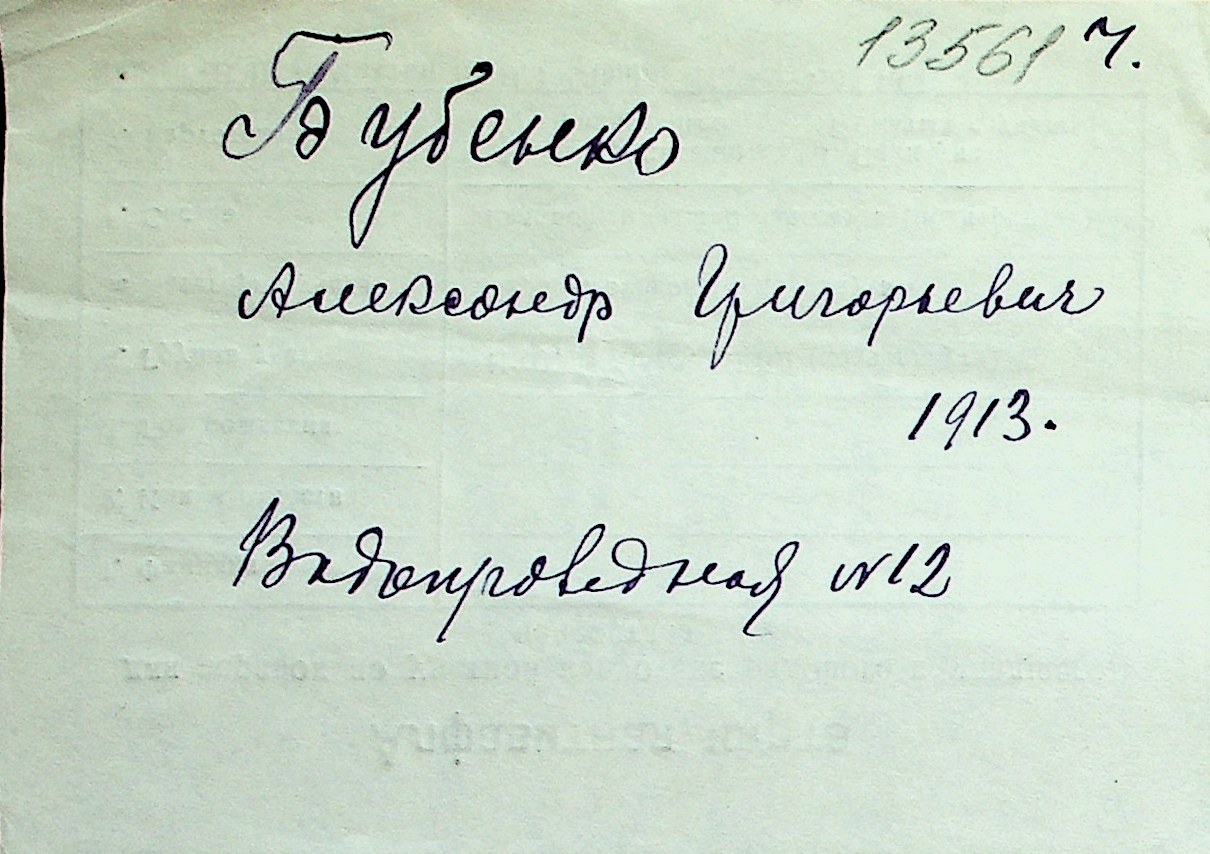 13561 ч.
Бубенко
Александр Григорьевич
1913.
Водопроводная №12